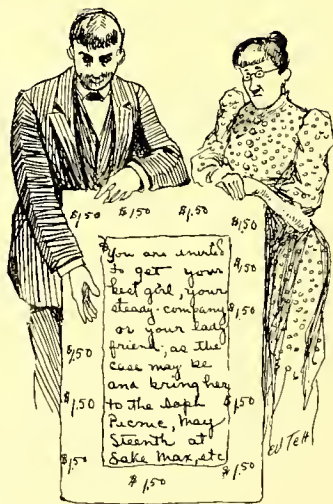 $1,50 $1,50 $1,50
You are invited
to get your
best girl, your
steady company
or your lady
friend, as the
case may be
and bring her
to the Soph
Picnic, May
Steenth at
Lake Max, etc
$1,50
$1,50
$1,50
$1,50
$1,50
$1,50
$1,50
$1,50